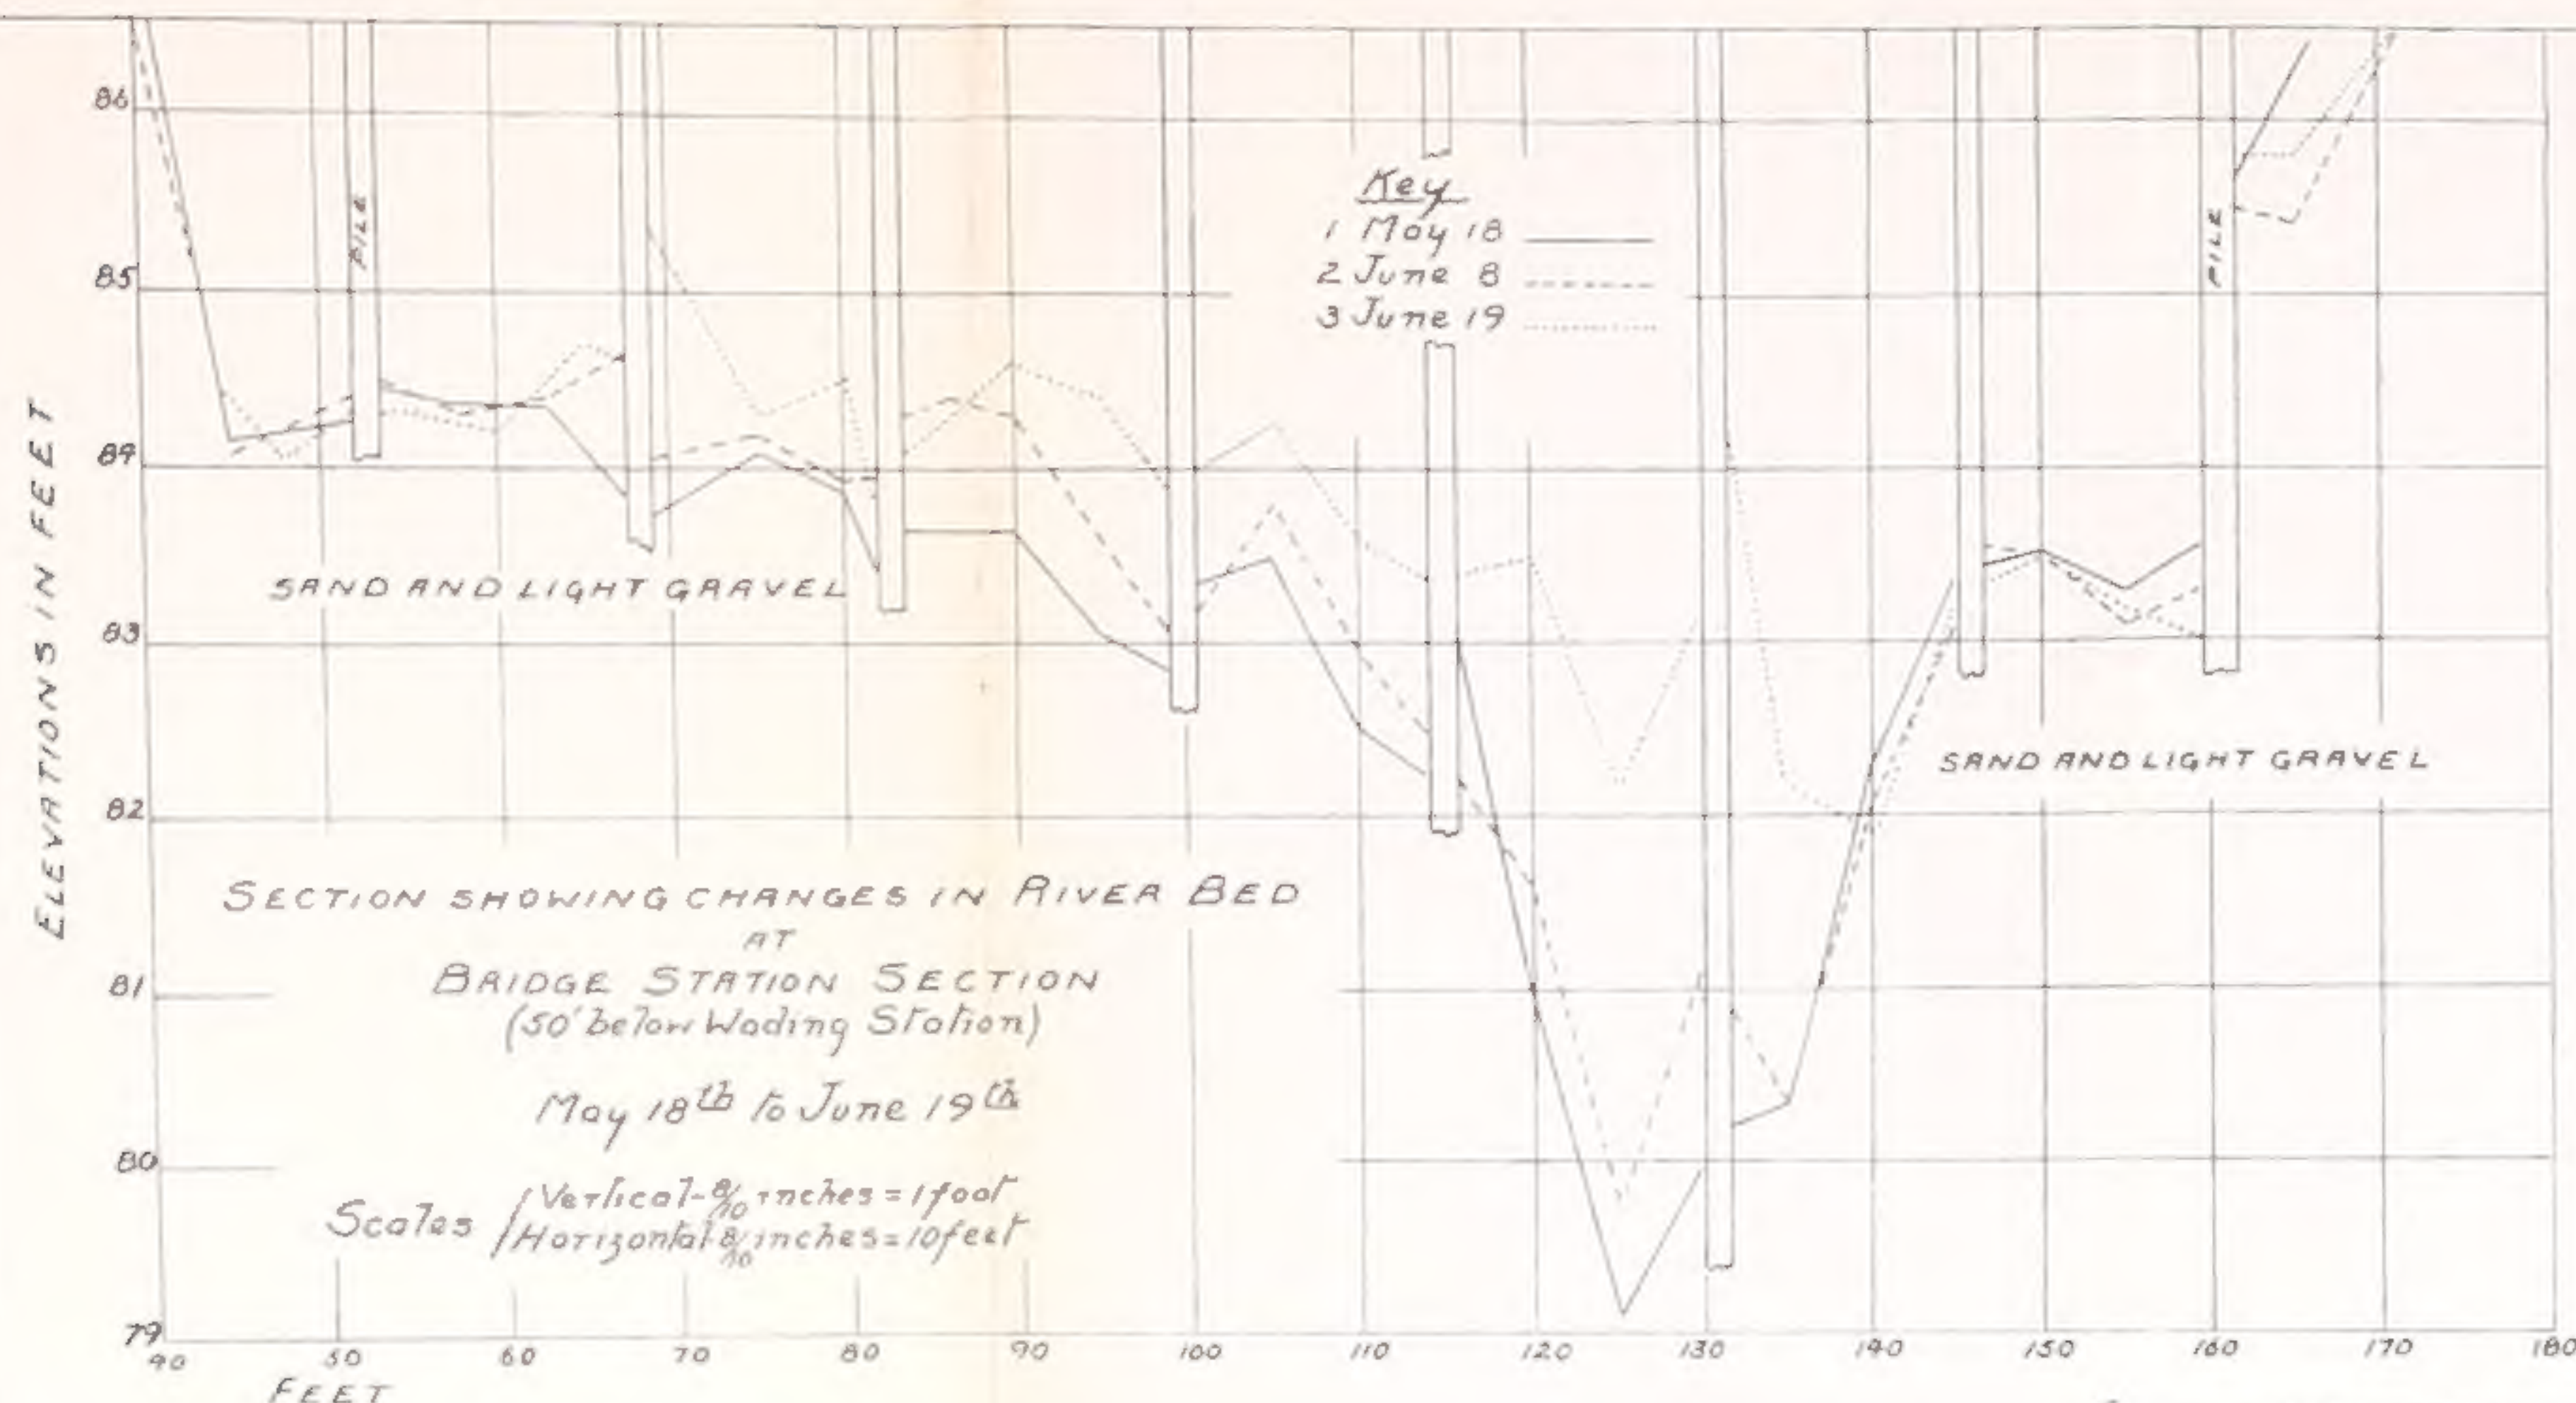 86
85
84
83
82
81
80
79
ELEVATIONS IN FEET
PILE
PILE
Key
1 May 18
2 June 8
3 June 19
SAND AND LIGHT GRAVEL
SAND AND LIGHT GRAVEL
SECTION SHOWING CHANGES IN RIVER BED
AT
BRIDGE STATION SECTION
(50' below Wading Station)
May 18th to June 19th
Scales Vertical - 8/10 inches = 1 foot
Horizontal 8/10 inches = 10 feet
40 50 60 70 80 90 100 110 120 130 140 150 160 170 180
FEET